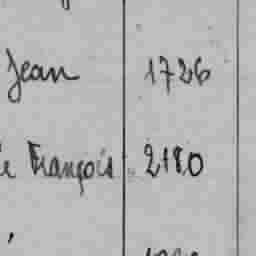 Jean 1726
François 2180